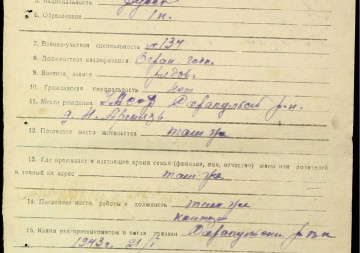 5. Национальность Русск
6. Образование 1 к.
7. Военно-учетная специальность № 134
8. Должностная квалификация
9. Военное звание рядов.
10. Гражданская специальность нет
11. Место рождения Сарапульский р-н.
д. Н.
12. Последнее место жительства там же
13. Где проживает в настоящее время семья (фамилия, имя, отчество) жены или родителей
и точный их адрес там же
14. Последнее место работы и должность там же
15. Каким райвоенкоматом и когда призван Сарапульским р-ч
1943 г. 21/I